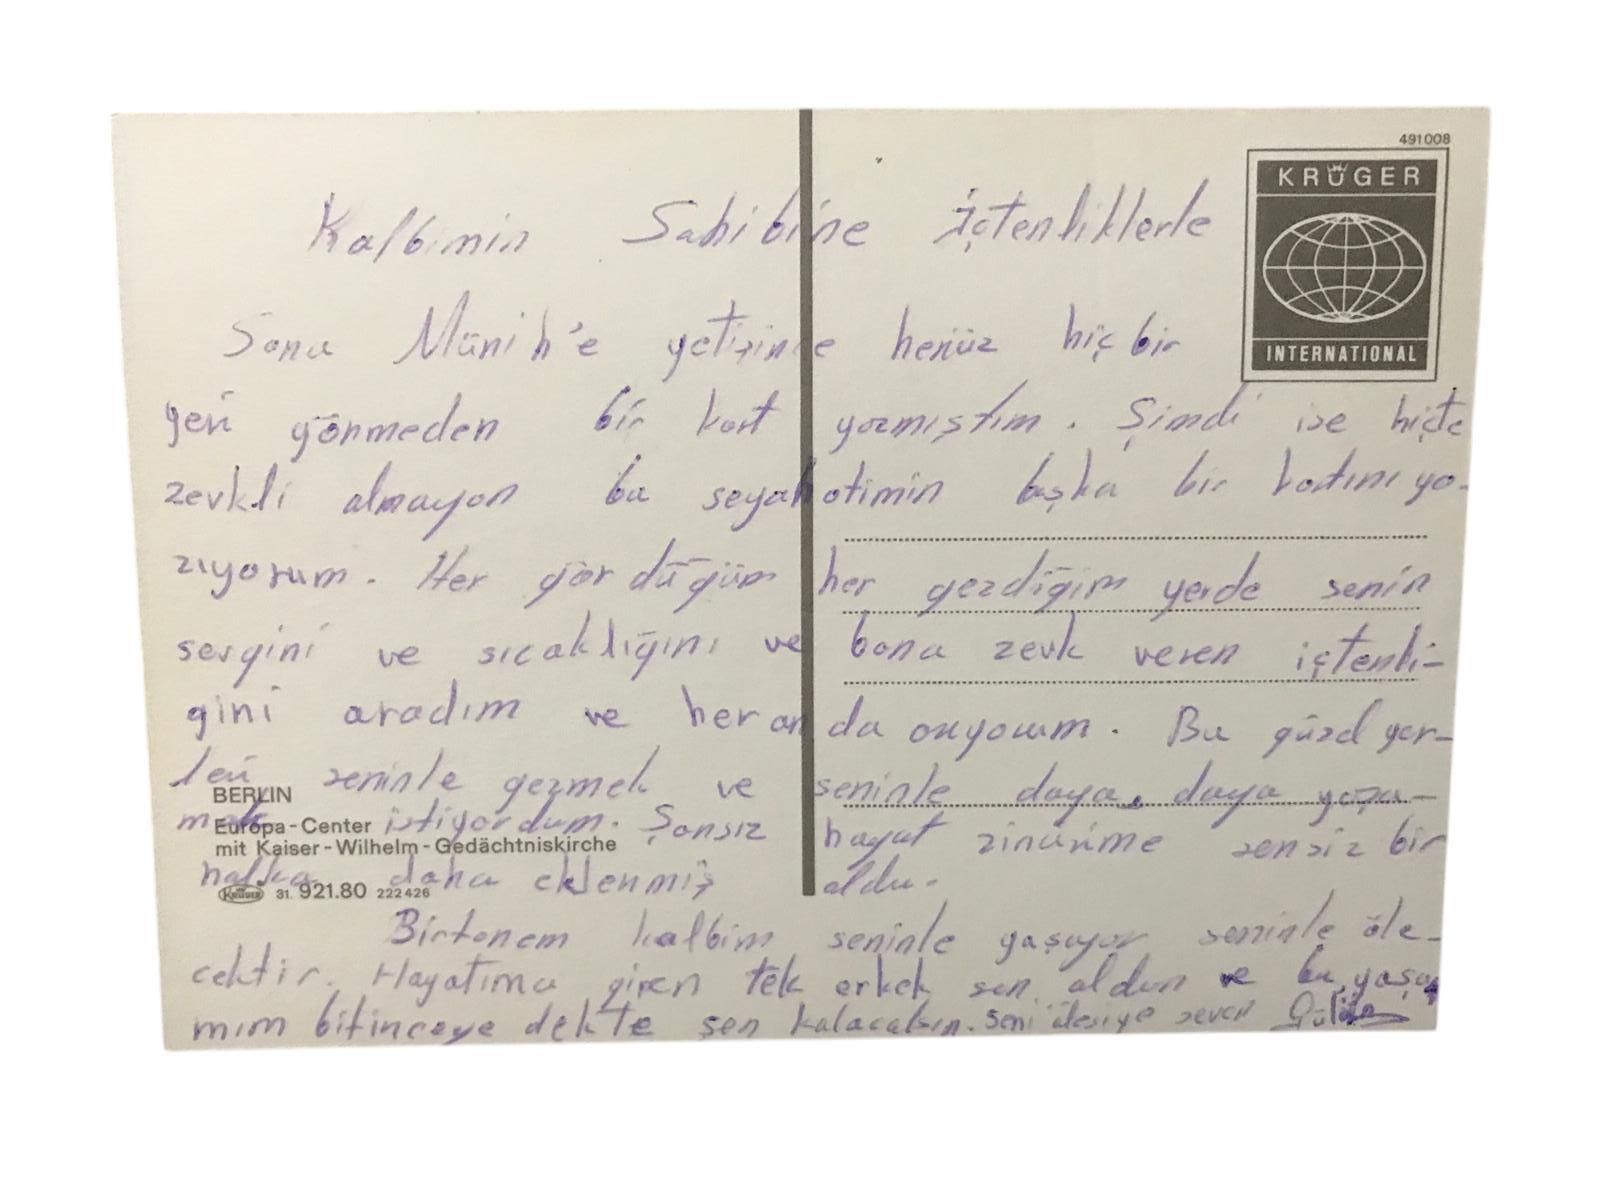 491008
KRÜGER
INTERNATIONAL
Kalbimin Sahibine İçtenliklerle
Sana Münih'e yetişince henüz hiç bir
yeri görmeden bir kart yazmıştım. Şimdi ise hiçte
zevkli olmayan bu seyahatimin başka bir kartını ya-
zıyorum. Her gördüğüm her gezdiğim yerde senin
sevgini ve sıcaklığını ve bana zevk veren içtenli-
ğini aradım ve her an da arıyorum. Bu güzel yer-
leri seninle gezmek ve seninle doya, doya yaşa-
mak istiyordum. Şansız hayat zincirime sensiz bir
halka daha eklenmiş oldu.
BERLIN
Europa-Center
mit Kaiser-Wilhelm-Gedächtniskirche
KRÜGER 31. 921.80 222426
Birtanem kalbim seninle yaşıyor seninle öle-
cektir. Hayatıma giren tek erkek sen oldun ve bu yaşa
mım bitinceye dekte sen kalacaksın. Seni seven